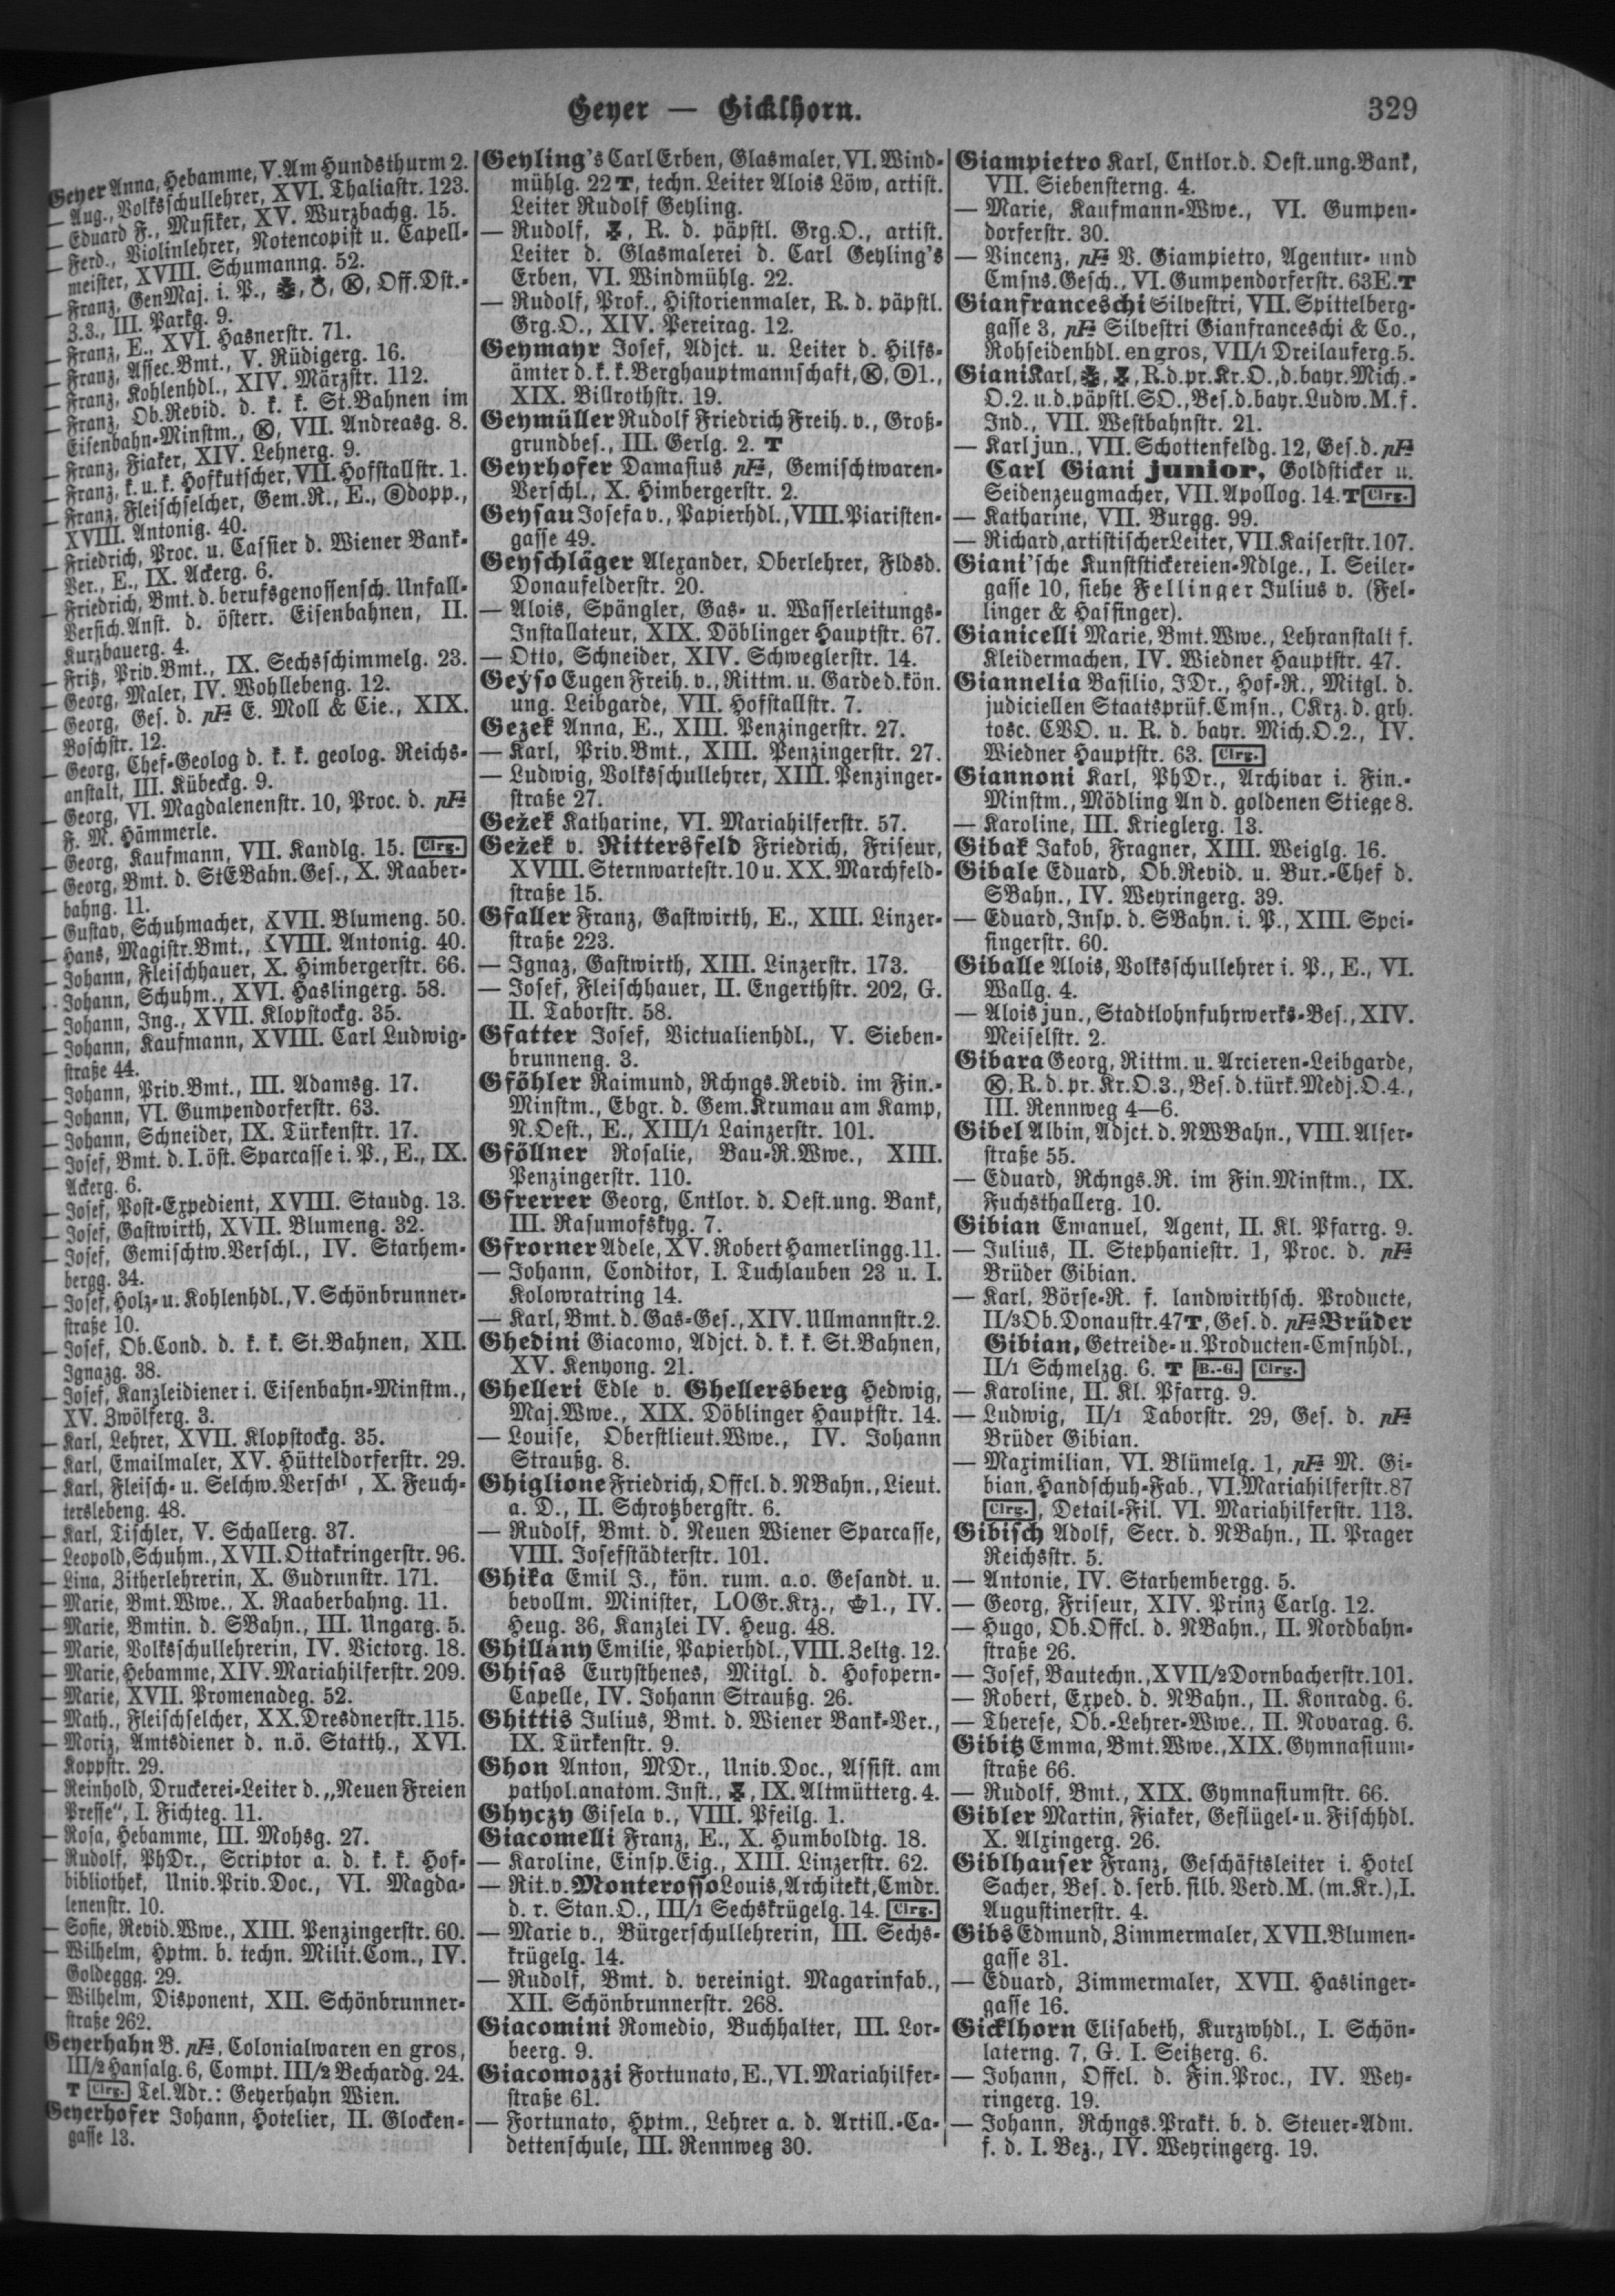 Geyer — Gicklhorn.
329
Geyer Anna, Hebamme, V. Am Hundsthurm 2.
— Aug., Volksschullehrer, XVI. Thaliastr. 123.
— Eduard F., Musiker, XV. Wurzbachg. 15.
— Ferd., Violinlehrer, Notencopist u. Capell-
meister, XVIII. Schumanng. 52.
— Franz, GenMaj. i. P., Ⓚ, Off.Dst.-
Z.3., III. Parkg. 9.
— Franz, E., XVI. Hasnerstr. 71.
— Franz, Assec.Bmt., V. Rüdigerg. 16.
— Franz, Kohlenhdl., XIV. Märzstr. 112.
— Franz, Ob.Revid. d. k. k. St.Bahnen im
Eisenbahn-Minstm., Ⓚ, VII. Andreasg. 8.
— Franz, Fiaker, XIV. Lehnerg. 9.
— Franz, k. u. k. Hofkutscher, VII. Hofstallstr. 1.
— Franz, Fleischselcher, Gem.R., E., Ⓢdopp.,
XVIII. Antonig. 40.
— Friedrich, Proc. u. Cassier d. Wiener Bank-
Ver., E., IX. Ackerg. 6.
— Friedrich, Bmt. d. berufsgenossensch. Unfall-
Versich.Anst. d. österr. Eisenbahnen, II.
Kurzbauerg. 4.
— Fritz, Priv.Bmt., IX. Sechsschimmelg. 23.
— Georg, Maler, IV. Wohllebeng. 12.
— Georg, Ges. d. pF E. Moll & Cie., XIX.
Boschstr. 12.
— Georg, Chef-Geolog d. k. k. geolog. Reichs-
anstalt, III. Kübeckg. 9.
— Georg, VI. Magdalenenstr. 10, Proc. d. pF
F. M. Hämmerle.
— Georg, Kaufmann, VII. Kandlg. 15. Clrg.
— Georg, Bmt. d. StEBahn.Ges., X. Raaber-
bahng. 11.
— Gustav, Schuhmacher, XVII. Blumeng. 50.
— Hans, Magistr.Bmt., XVIII. Antonig. 40.
— Johann, Fleischhauer, X. Himbergerstr. 66.
— Johann, Schuhm., XVI. Haslingerg. 58.
— Johann, Ing., XVII. Klopstockg. 35.
— Johann, Kaufmann, XVIII. Carl Ludwig-
straße 44.
— Johann, Priv.Bmt., III. Adamsg. 17.
— Johann, VI. Gumpendorferstr. 63.
— Johann, Schneider, IX. Türkenstr. 17.
— Josef, Bmt. d. I. öst. Sparcasse i. P., E., IX.
Ackerg. 6.
— Josef, Post-Expedient, XVIII. Staudg. 13.
— Josef, Gastwirth, XVII. Blumeng. 32.
— Josef, Gemischtw.Verschl., IV. Starhem-
bergg. 34.
— Josef, Holz- u. Kohlenhdl., V. Schönbrunner-
straße 10.
— Josef, Ob.Cond. d. k. k. St.Bahnen, XII.
Ignazg. 38.
— Josef, Kanzleidiener i. Eisenbahn-Minstm.,
XV. Zwölferg. 3.
— Karl, Lehrer, XVII. Klopstockg. 35.
— Karl, Emailmaler, XV. Hütteldorferstr. 29.
— Karl, Fleisch- u. Selchw.Verschl , X. Feuch-
terslebeng. 48.
— Karl, Tischler, V. Schallerg. 37.
— Leopold, Schuhm., XVII. Ottakringerstr. 96.
— Lina, Zitherlehrerin, X. Gudrunstr. 171.
— Marie, Bmt.Wwe., X. Raaberbahng. 11.
— Marie, Bmtin. d. SBahn., III. Ungarg. 5.
— Marie, Volksschullehrerin, IV. Victorg. 18.
— Marie, Hebamme, XIV. Mariahilferstr. 209.
— Marie, XVII. Promenadeg. 52.
— Math., Fleischselcher, XX. Dresdnerstr. 115.
— Moriz, Amtsdiener d. n.ö. Statth., XVI.
Koppstr. 29.
— Reinhold, Druckerei-Leiter d. „Neuen Freien
Presse“, I. Fichteg. 11.
— Rosa, Hebamme, III. Mohsg. 27.
— Rudolf, PhDr., Scriptor a. d. k. k. Hof-
bibliothek, Univ.Priv.Doc., VI. Magda-
lenenstr. 10.
— Sofie, Revid.Wwe., XIII. Penzingerstr. 60.
— Wilhelm, Hptm. b. techn. Milit.Com., IV.
Goldeggg. 29.
— Wilhelm, Disponent, XII. Schönbrunner-
straße 262.
Geyerhahn B. pF, Colonialwaren en gros,
III/2 Hansalg. 6, Compt. III/2 Bechardg. 24.
T Clrg. Tel.Adr.: Geyerhahn Wien.
Geyerhofer Johann, Hotelier, II. Glocken-
gasse 13.
Geyling's Carl Erben, Glasmaler, VI. Wind-
mühlg. 22 T, techn. Leiter Alois Löw, artist.
Leiter Rudolf Geyling.
— Rudolf, R. d. päpstl. Grg.O., artist.
Leiter d. Glasmalerei d. Carl Geyling's
Erben, VI. Windmühlg. 22.
— Rudolf, Prof., Historienmaler, R. d. päpstl.
Grg.O., XIV. Pereirag. 12.
Geymayr Josef, Adjct. u. Leiter d. Hilfs-
ämter d. k. k. Berghauptmannschaft, Ⓚ, Ⓓ1.,
XIX. Billrothstr. 19.
Geymüller Rudolf Friedrich Freih. v., Groß-
grundbes., III. Gerlg. 2. T
Geyrhofer Damasius pF, Gemischtwaren-
Verschl., X. Himbergerstr. 2.
Geysau Josefa v., Papierhdl., VIII. Piaristen-
gasse 49.
Geyschläger Alexander, Oberlehrer, Fldsd.
Donaufelderstr. 20.
— Alois, Spängler, Gas- u. Wasserleitungs-
Installateur, XIX. Döblinger Hauptstr. 67.
— Otto, Schneider, XIV. Schweglerstr. 14.
Geyso Eugen Freih. v., Rittm. u. Garde d. kön.
ung. Leibgarde, VII. Hofstallstr. 7.
Gezek Anna, E., XIII. Penzingerstr. 27.
— Karl, Priv.Bmt., XIII. Penzingerstr. 27.
— Ludwig, Volksschullehrer, XIII. Penzinger-
straße 27.
Gežek Katharine, VI. Mariahilferstr. 57.
Gežek v. Rittersfeld Friedrich, Friseur,
XVIII. Sternwartestr. 10 u. XX. Marchfeld-
straße 15.
Gfaller Franz, Gastwirth, E., XIII. Linzer-
straße 223.
— Ignaz, Gastwirth, XIII. Linzerstr. 173.
— Josef, Fleischhauer, II. Engerthstr. 202, G.
II. Taborstr. 58.
Gfatter Josef, Victualienhdl., V. Sieben-
brunneng. 3.
Gföhler Raimund, Rchngs.Revid. im Fin.-
Minstm., Ebgr. d. Gem.Krumau am Kamp,
N.Oest., E., XIII/1 Lainzerstr. 101.
Gföllner Rosalie, Bau-R.Wwe., XIII.
Penzingerstr. 110.
Gfrerrer Georg, Cntlor. d. Oest.ung. Bank,
III. Rasumofskyg. 7.
Gfrorner Adele, XV. Robert Hamerlingg. 11.
— Johann, Conditor, I. Tuchlauben 23 u. I.
Kolowratring 14.
— Karl, Bmt. d. Gas-Ges., XIV. Ullmannstr. 2.
Ghedini Giacomo, Adjct. d. k. k. St.Bahnen,
XV. Kenyong. 21.
Ghelleri Edle v. Ghellersberg Hedwig,
Maj.Wwe., XIX. Döblinger Hauptstr. 14.
— Louise, Oberstlieut.Wwe., IV. Johann
Straußg. 8.
Ghiglione Friedrich, Offcl. d. NBahn., Lieut.
a. D., II. Schrotzbergstr. 6.
— Rudolf, Bmt. d. Neuen Wiener Sparcasse,
VIII. Josefstädterstr. 101.
Ghika Emil J., kön. rum. a.o. Gesandt. u.
bevollm. Minister, LOGr.Krz., 1., IV.
Heug. 36, Kanzlei IV. Heug. 48.
Ghillány Emilie, Papierhdl., VIII. Zeltg. 12.
Ghisas Eurysthenes, Mitgl. d. Hofopern-
Capelle, IV. Johann Straußg. 26.
Ghittis Julius, Bmt. d. Wiener Bank-Ver.,
IX. Türkenstr. 9.
Ghon Anton, MDr., Univ.Doc., Assist. am
pathol.anatom. Inst., IX. Altmütterg. 4.
Ghyczy Gisela v., VIII. Pfeilg. 1.
Giacomelli Franz, E., X. Humboldtg. 18.
— Karoline, Einsp.Eig., XIII. Linzerstr. 62.
— Rit. v. Monterosso Louis, Architekt, Cmdr.
d. r. Stan.O., III/1 Sechskrügelg. 14. Clrg.
— Marie v., Bürgerschullehrerin, III. Sechs-
krügelg. 14.
— Rudolf, Bmt. d. vereinigt. Magarinfab.,
XII. Schönbrunnerstr. 268.
Giacomini Romedio, Buchhalter, III. Lor-
beerg. 9.
Giacomozzi Fortunato, E., VI. Mariahilfer-
straße 61.
— Fortunato, Hptm., Lehrer a. d. Artill.-Ca-
dettenschule, III. Rennweg 30.
Giampietro Karl, Cntlor. d. Oest.ung.Bank,
VII. Siebensterng. 4.
— Marie, Kaufmann-Wwe., VI. Gumpen-
dorferstr. 30.
— Vincenz, pF V. Giampietro, Agentur- und
Cmsns.Gesch., VI. Gumpendorferstr. 63E. T
Gianfranceschi Silvestri, VII. Spittelberg-
gasse 3, pF Silvestri Gianfranceschi & Co.,
Rohseidenhdl. en gros, VII/1 Dreilauferg. 5.
Giani Karl, R. d. pr. Kr.O., d. bayr. Mich.-
O.2. u. d. päpstl. SO., Bes. d. bayr. Ludw.M. f.
Ind., VII. Westbahnstr. 21.
— Karl jun., VII. Schottenfeldg. 12, Ges. d. pF
Carl Giani junior, Goldsticker u.
Seidenzeugmacher, VII. Apollog. 14. T Clrg.
— Katharine, VII. Burgg. 99.
— Richard, artistischer Leiter, VII. Kaiserstr. 107.
Giani'sche Kunststickereien-Ndlge., I. Seiler-
gasse 10, siehe Fellinger Julius v. (Fel-
linger & Hassinger).
Gianicelli Marie, Bmt.Wwe., Lehranstalt f.
Kleidermachen, IV. Wiedner Hauptstr. 47.
Giannelia Basilio, JDr., Hof-R., Mitgl. d.
judiciellen Staatsprüf.Cmsn., CKrz. d. grh.
tosc. CVO. u. R. d. bayr. Mich.O.2., IV.
Wiedner Hauptstr. 63. Clrg.
Giannoni Karl, PhDr., Archivar i. Fin.-
Minstm., Mödling An d. goldenen Stiege 8.
— Karoline, III. Krieglerg. 13.
Gibak Jakob, Fragner, XIII. Weiglg. 16.
Gibale Eduard, Ob.Revid. u. Bur.-Chef d.
SBahn., IV. Weyringerg. 39.
— Eduard, Insp. d. SBahn. i. P., XIII. Spei-
singerstr. 60.
Giballe Alois, Volksschullehrer i. P., E., VI.
Wallg. 4.
— Alois jun., Stadtlohnfuhrwerks-Bes., XIV.
Meiselstr. 2.
Gibara Georg, Rittm. u. Arcieren-Leibgarde,
Ⓚ, R. d. pr. Kr.O.3., Bes. d. türk. Medj.O.4.,
III. Rennweg 4—6.
Gibel Albin, Adjct. d. NWBahn., VIII. Alser-
straße 55.
— Eduard, Rchngs.R. im Fin.Minstm., IX.
Fuchsthallerg. 10.
Gibian Emanuel, Agent, II. Kl. Pfarrg. 9.
— Julius, II. Stephaniestr. 1, Proc. d. pF
Brüder Gibian.
— Karl, Börse-R. f. landwirthsch. Producte,
II/3 Ob. Donaustr. 47 T, Ges. d. pF Brüder
Gibian, Getreide- u. Producten-Cmsnhdl.,
II/1 Schmelzg. 6. T B.-G. Clrg.
— Karoline, II. Kl. Pfarrg. 9.
— Ludwig, II/1 Taborstr. 29, Ges. d. pF
Brüder Gibian.
— Maximilian, VI. Blümelg. 1, pF M. Gi-
bian, Handschuh-Fab., VI. Mariahilferstr. 87
Clrg., Detail-Fil. VI. Mariahilferstr. 113.
Gibisch Adolf, Secr. d. NBahn., II. Prager
Reichsstr. 5.
— Antonie, IV. Starhembergg. 5.
— Georg, Friseur, XIV. Prinz Carlg. 12.
— Hugo, Ob.Offcl. d. NBahn., II. Nordbahn-
straße 26.
— Josef, Bautechn., XVII/2 Dornbacherstr. 101.
— Robert, Exped. d. NBahn., II. Konradg. 6.
— Therese, Ob.-Lehrer-Wwe., II. Novarag. 6.
Gibitz Emma, Bmt.Wwe., XIX. Gymnasium-
straße 66.
— Rudolf, Bmt., XIX. Gymnasiumstr. 66.
Gibler Martin, Fiaker, Geflügel- u. Fischhdl.
X. Alxingerg. 26.
Giblhauser Franz, Geschäftsleiter i. Hotel
Sacher, Bes. d. serb. silb. Verd.M. (m.Kr.), I.
Augustinerstr. 4.
Gibs Edmund, Zimmermaler, XVII. Blumen-
gasse 31.
— Eduard, Zimmermaler, XVII. Haslinger-
gasse 16.
Gicklhorn Elisabeth, Kurzwhdl., I. Schön-
laterng. 7, G. I. Seitzerg. 6.
— Johann, Offcl. d. Fin.Proc., IV. Wey-
ringerg. 19.
— Johann, Rchngs.Prakt. b. d. Steuer-Adm.
f. d. I. Bez., IV. Weyringerg. 19.